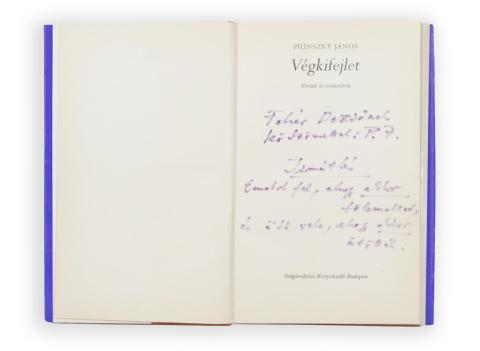 PILINSZKY JÁNOS
Végkifejlet
Versek és színművek
Fehér Dezsőnek
köszönettel: P. J.
Ismétlés
Emeld fel, ahogy akkor
fölemelted,
és üss vele, ahogy akkor
ütöttél.
Szépirodalmi Könyvkiadó Budapest